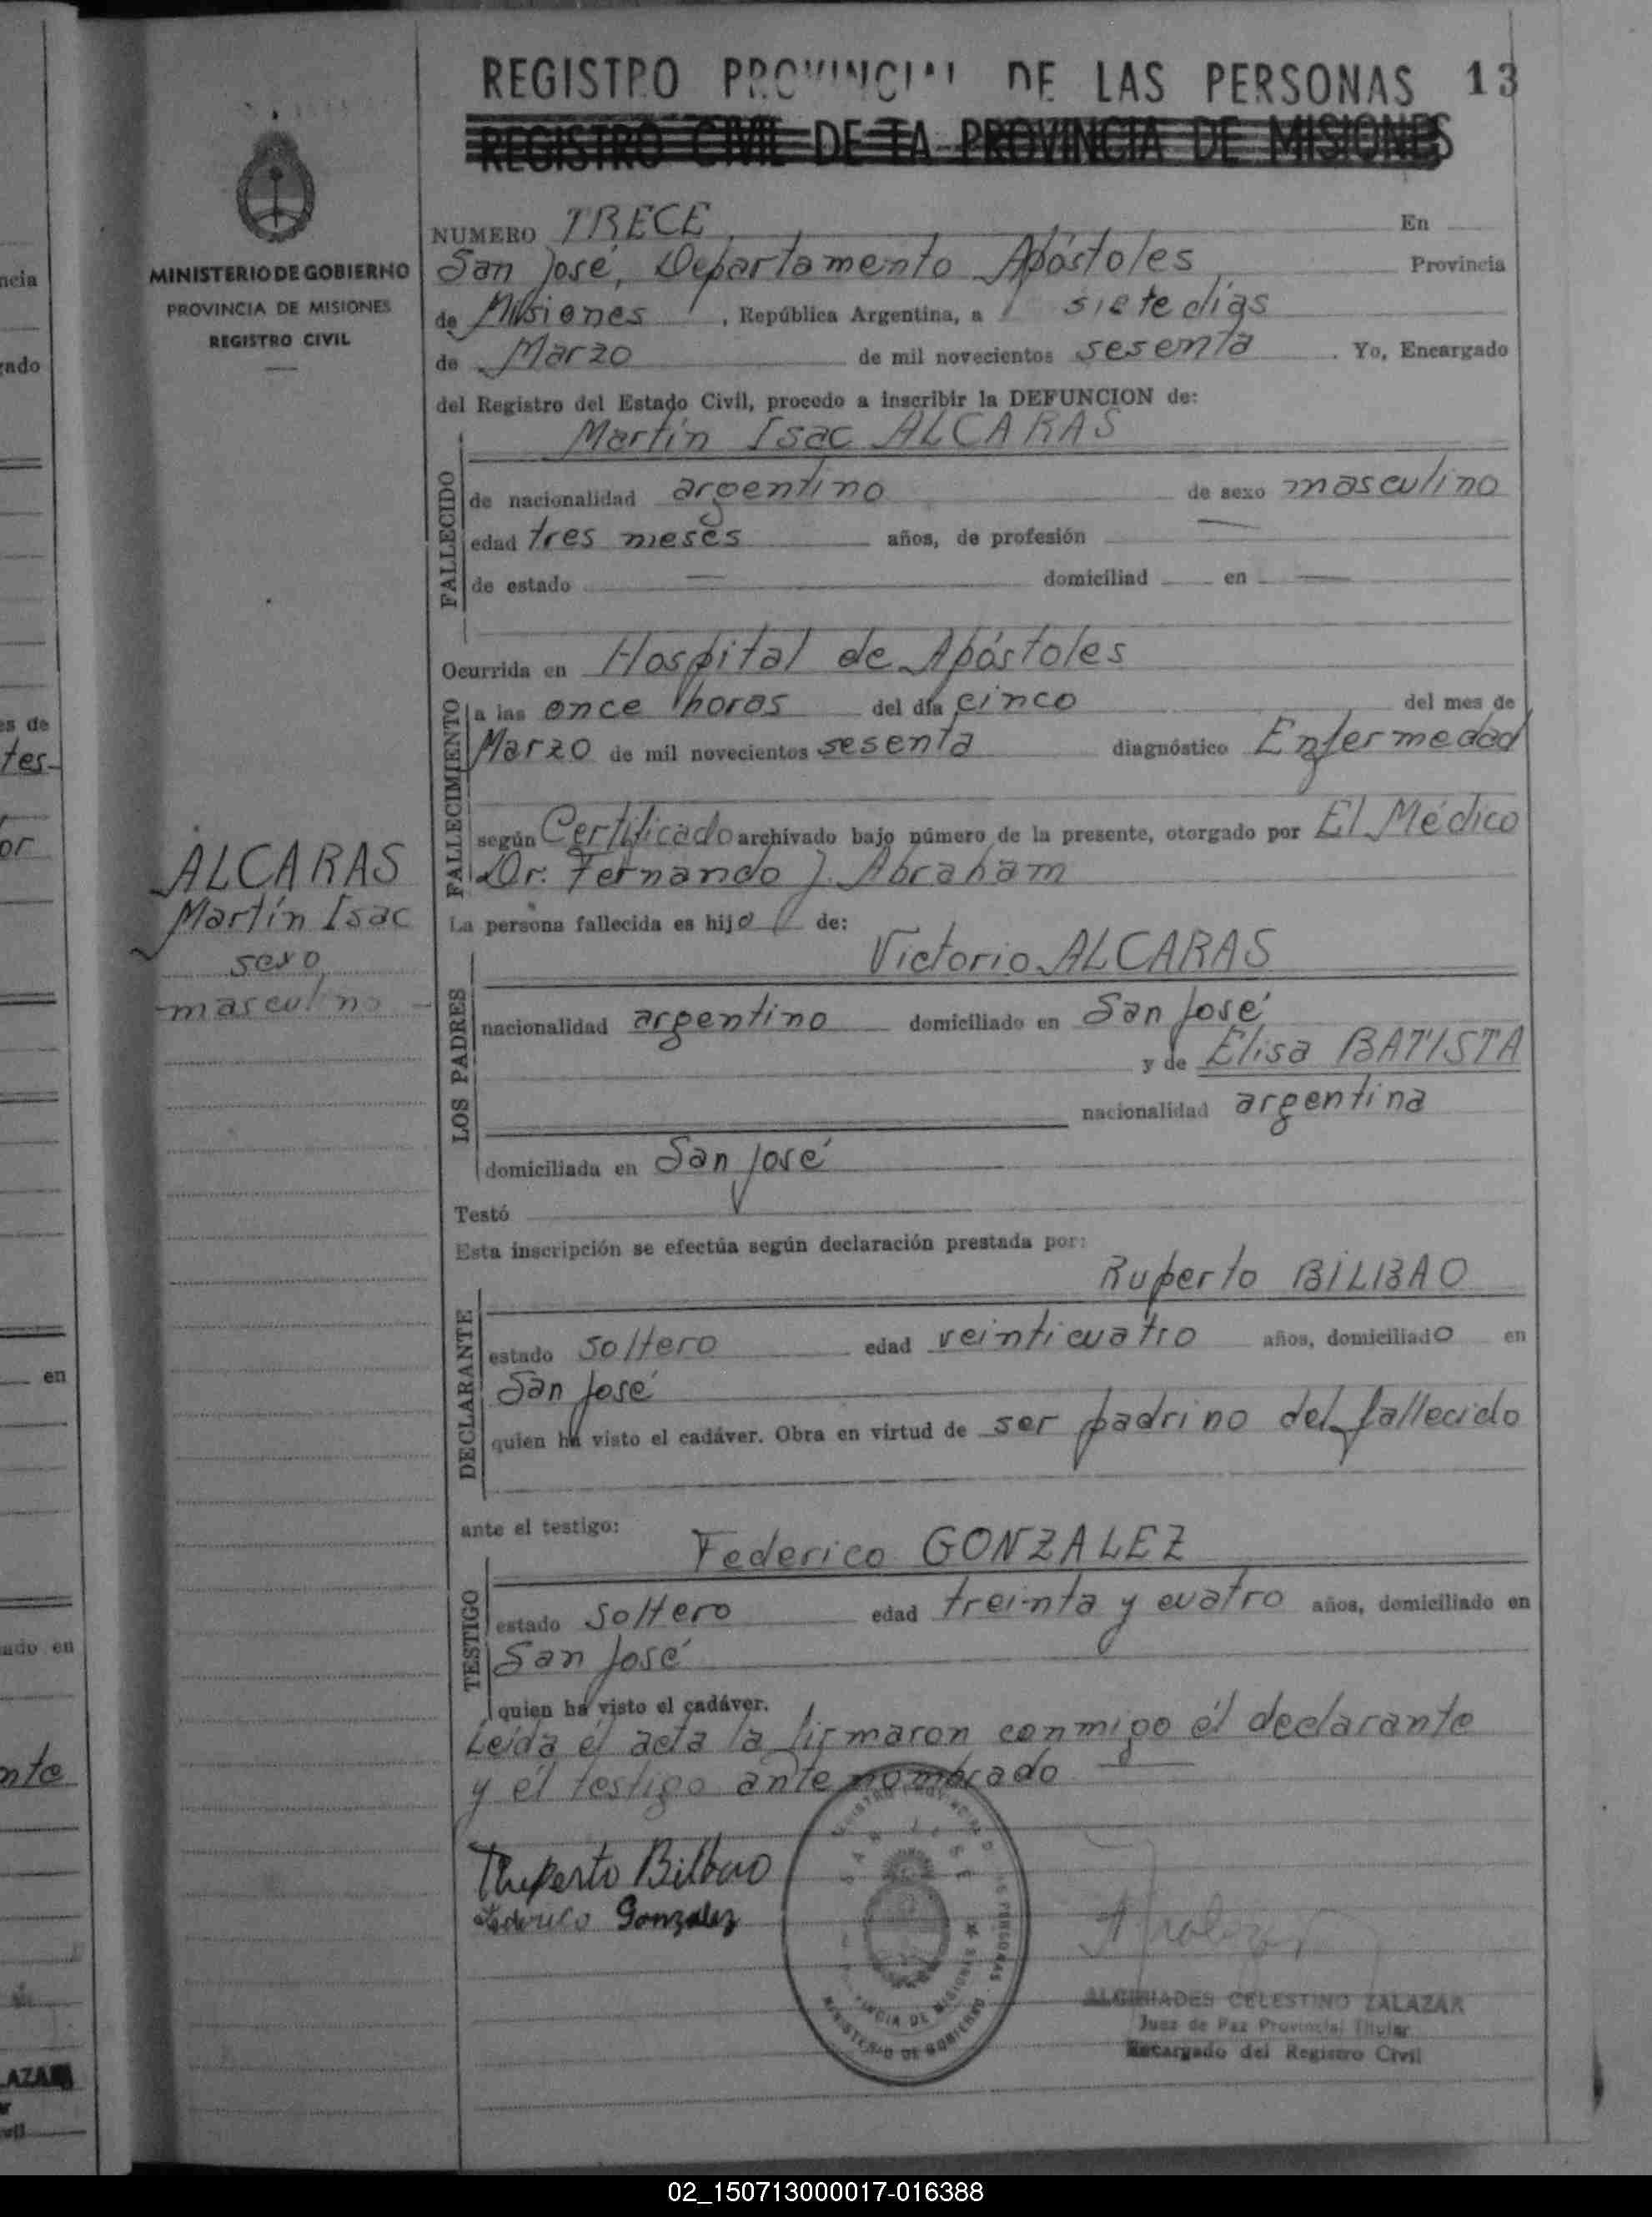 REGISTRO PROVINCIAL DE LAS PERSONAS 13
REGISTRO CIVIL DE LA PROVINCIA DE MISIONES
MINISTERIO DE GOBIERNO
PROVINCIA DE MISIONES
REGISTRO CIVIL
NUMERO TRECE En
San José, Departamento Apóstoles Provincia
de Misiones, República Argentina, a siete días
de Marzo de mil novecientos sesenta. Yo, Encargado
del Registro del Estado Civil, procedo a inscribir la DEFUNCION de:
Martín Isac ALCARAS
FALLECIDO
de nacionalidad argentino de sexo masculino
edad tres meses años, de profesión —
de estado — domiciliad en —
Ocurrida en Hospital de Apóstoles
FALLECIMIENTO
a las once horas del día cinco del mes de
Marzo de mil novecientos sesenta diagnóstico Enfermedad
según Certificado archivado bajo número de la presente, otorgado por El Médico
Dr. Fernando J. Abraham
ALCARAS
Martín Isac
sexo
masculino
La persona fallecida es hijo de:
Victorio ALCARAS
LOS PADRES
nacionalidad argentino domiciliado en San José
y de Elisa BATISTA
nacionalidad argentina
domiciliada en San José
Testó
Esta inscripción se efectúa según declaración prestada por:
Ruperto BILBAO
DECLARANTE
estado soltero edad veinticuatro años, domiciliado en
San José
quien ha visto el cadáver. Obra en virtud de ser padrino del fallecido
ante el testigo:
Federico GONZALEZ
TESTIGO
estado soltero edad treinta y cuatro años, domiciliado en
San José
quien ha visto el cadáver.
Leída él acta la firmaron conmigo él declarante
y él testigo ante nombrado —
Ruperto Bilbao
Federico Gonzalez
SAN JOSE
PROVINCIA DE MISIONES
MINISTERIO DE GOBIERNO
ALCIBIADES CELESTINO ZALAZAR
Juez de Paz Provincial Titular
Encargado del Registro Civil
02_150713000017-016388